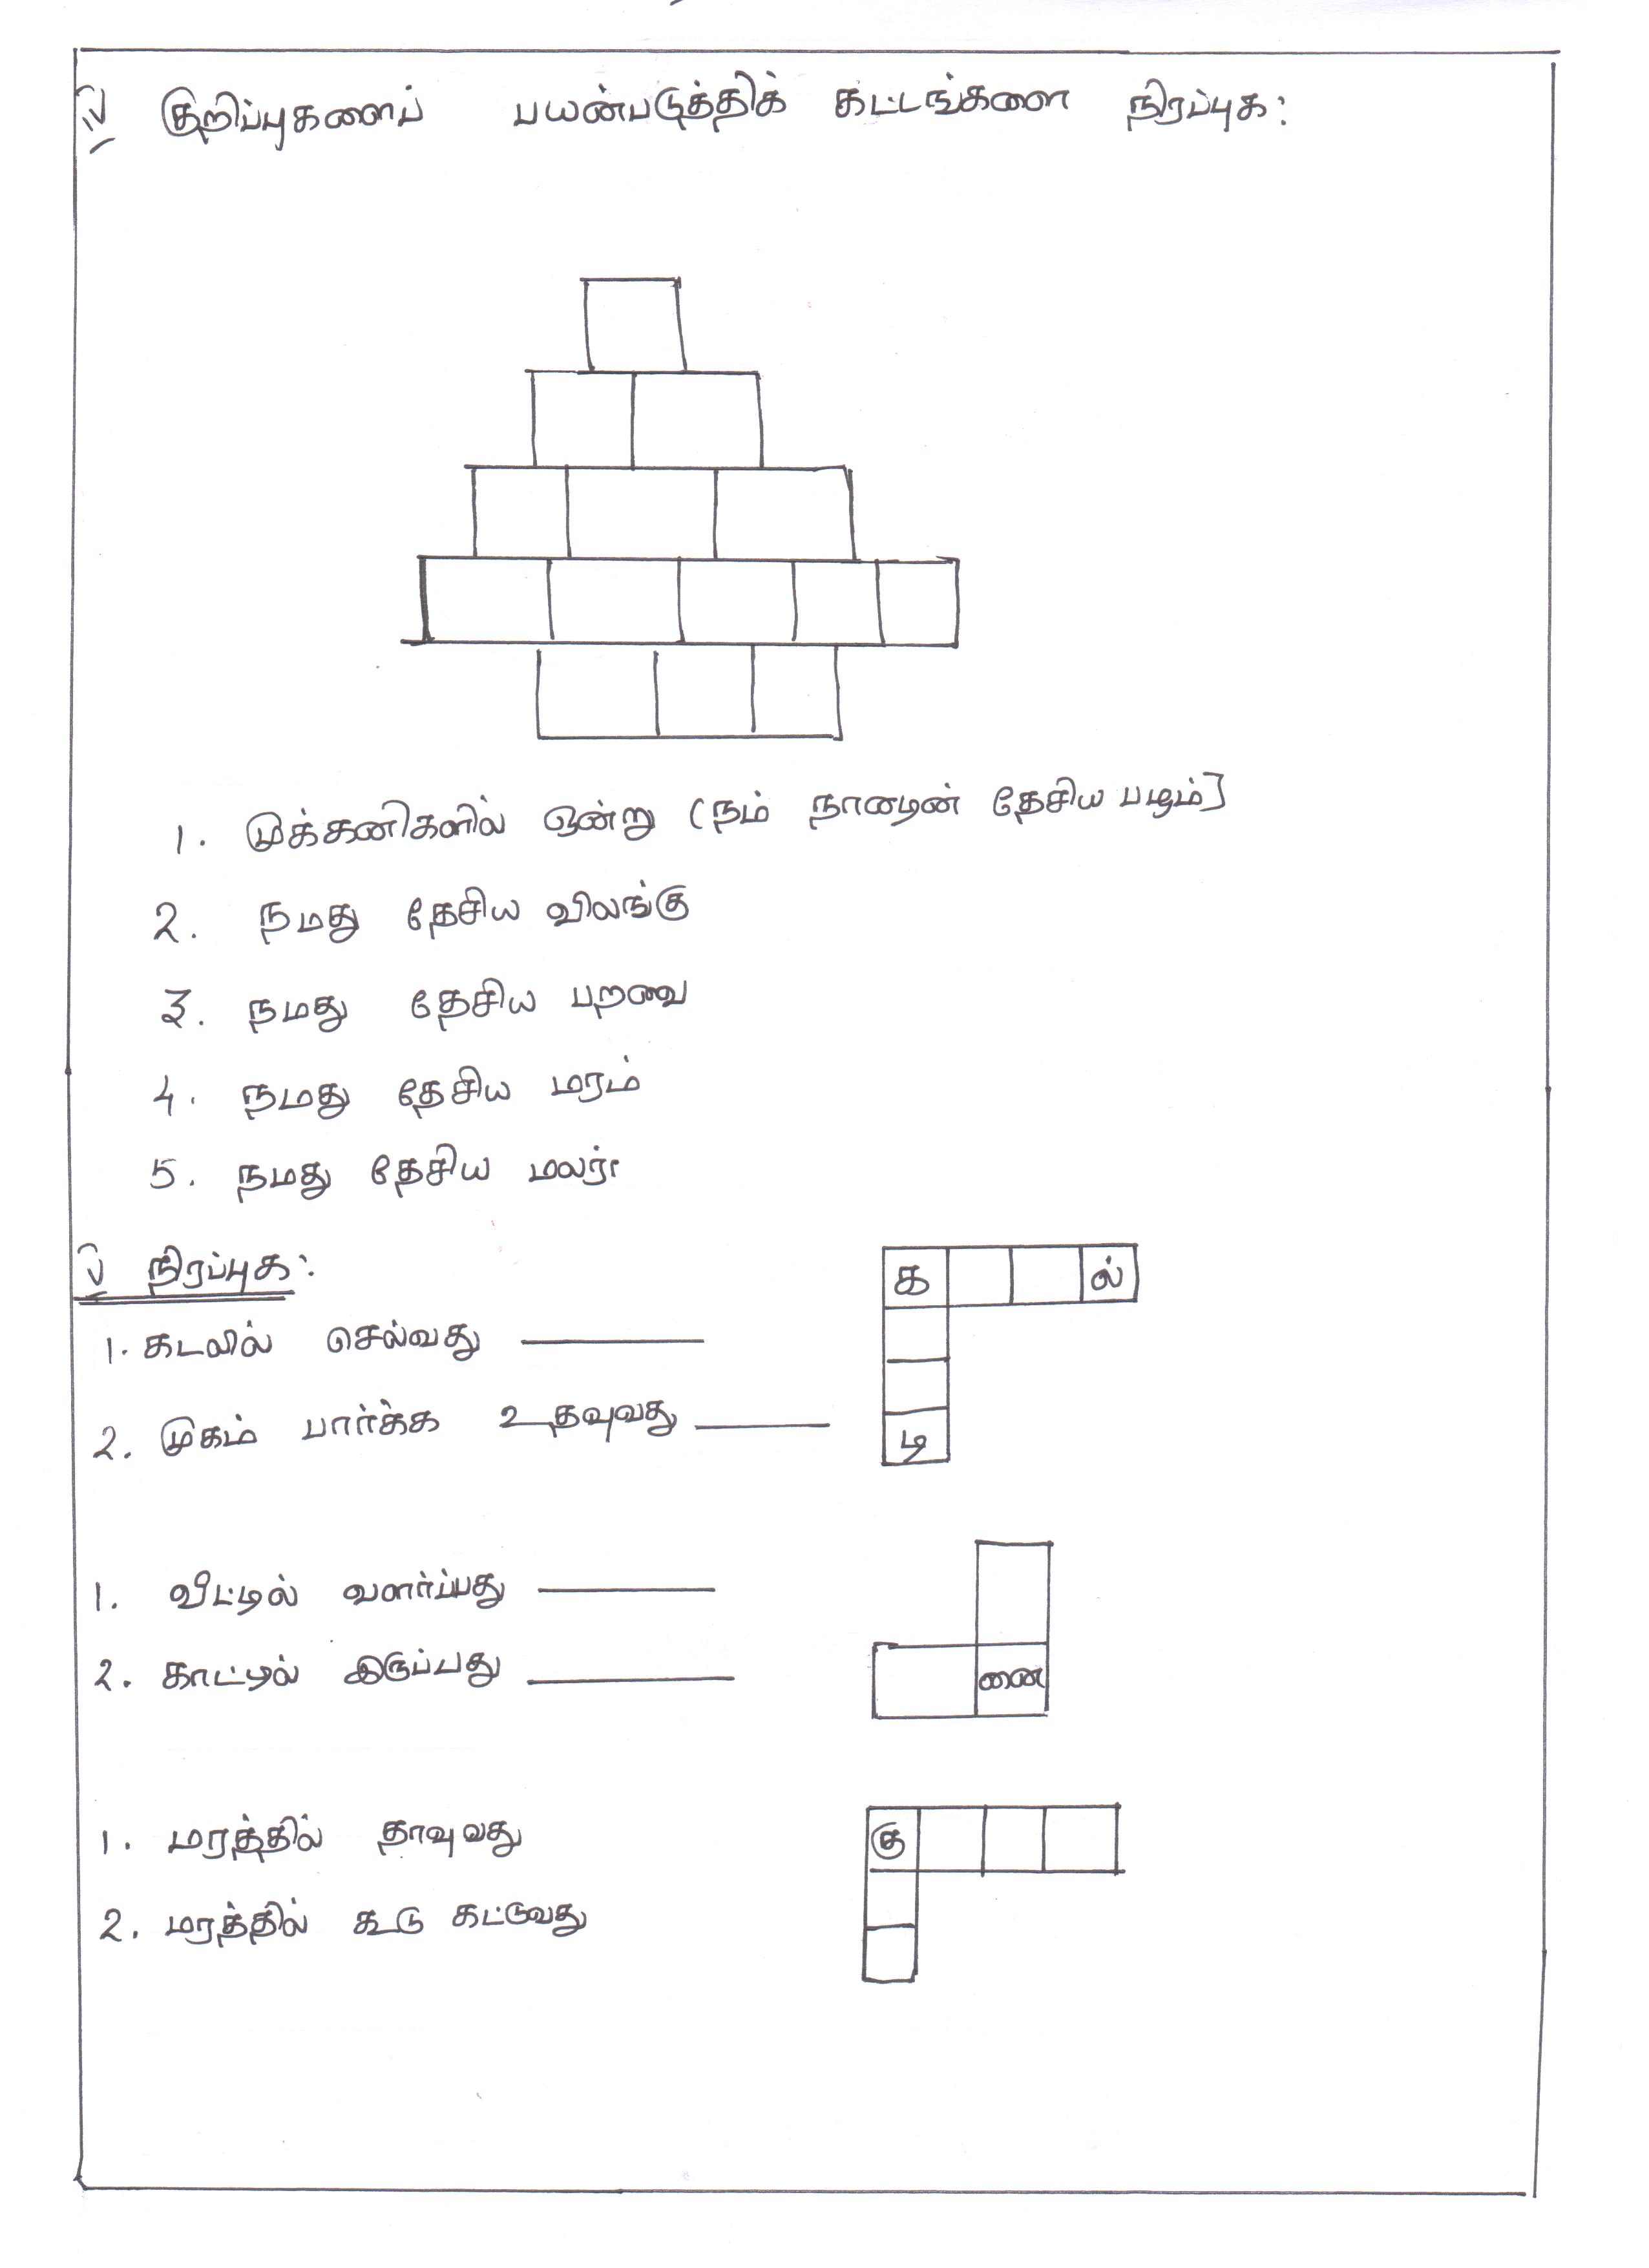 IV குறிப்புகளைப் பயன்படுத்திக் கட்டங்களை நிரப்புக:
1. முக்கனிகளில் ஒன்று (நம் நாட்டின் தேசிய பழம்]
2. நமது தேசிய விலங்கு
3. நமது தேசிய பறவை
4. நமது தேசிய மரம்
5. நமது தேசிய மலர்
V நிரப்புக:
க ல்
1. கடலில் செல்வது
2. முகம் பார்க்க உதவுவது
டி
1. வீட்டில் வளர்ப்பது
2. காட்டில் இருப்பது
னை
1. மரத்தில் தாவுவது
கு
2. மரத்தில் கூடு கட்டுவது